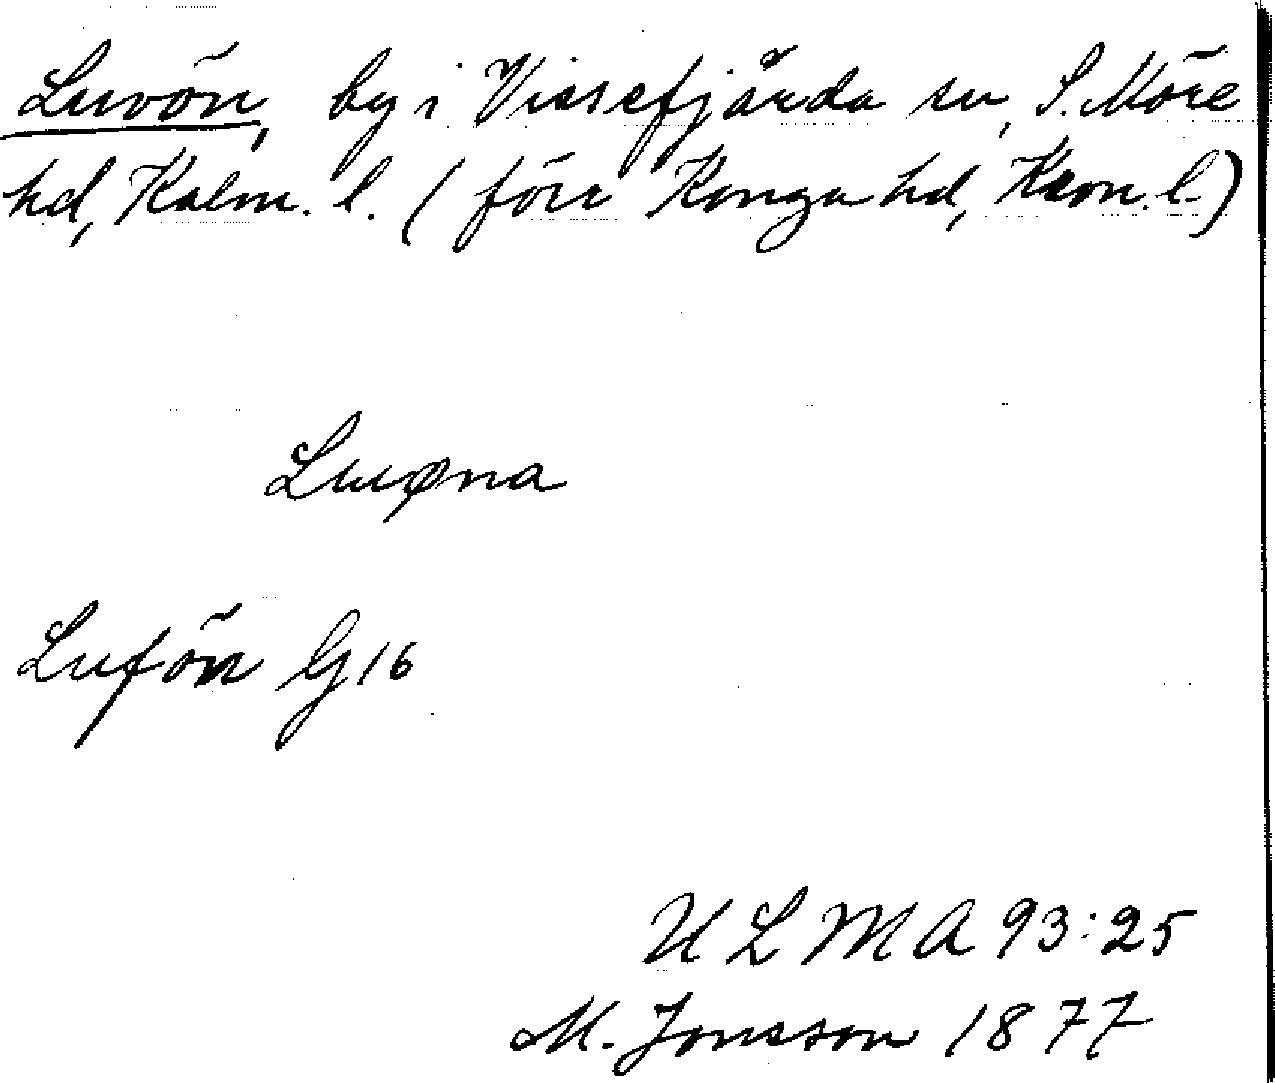 Luvön, by i Vissefjärda sn, S. Möre
hd, Kalm. l. (förr Konga hd, Kron. l.)
Luuøna
Lufön G 16
ULMA 93:25
M. Jonsson 1877